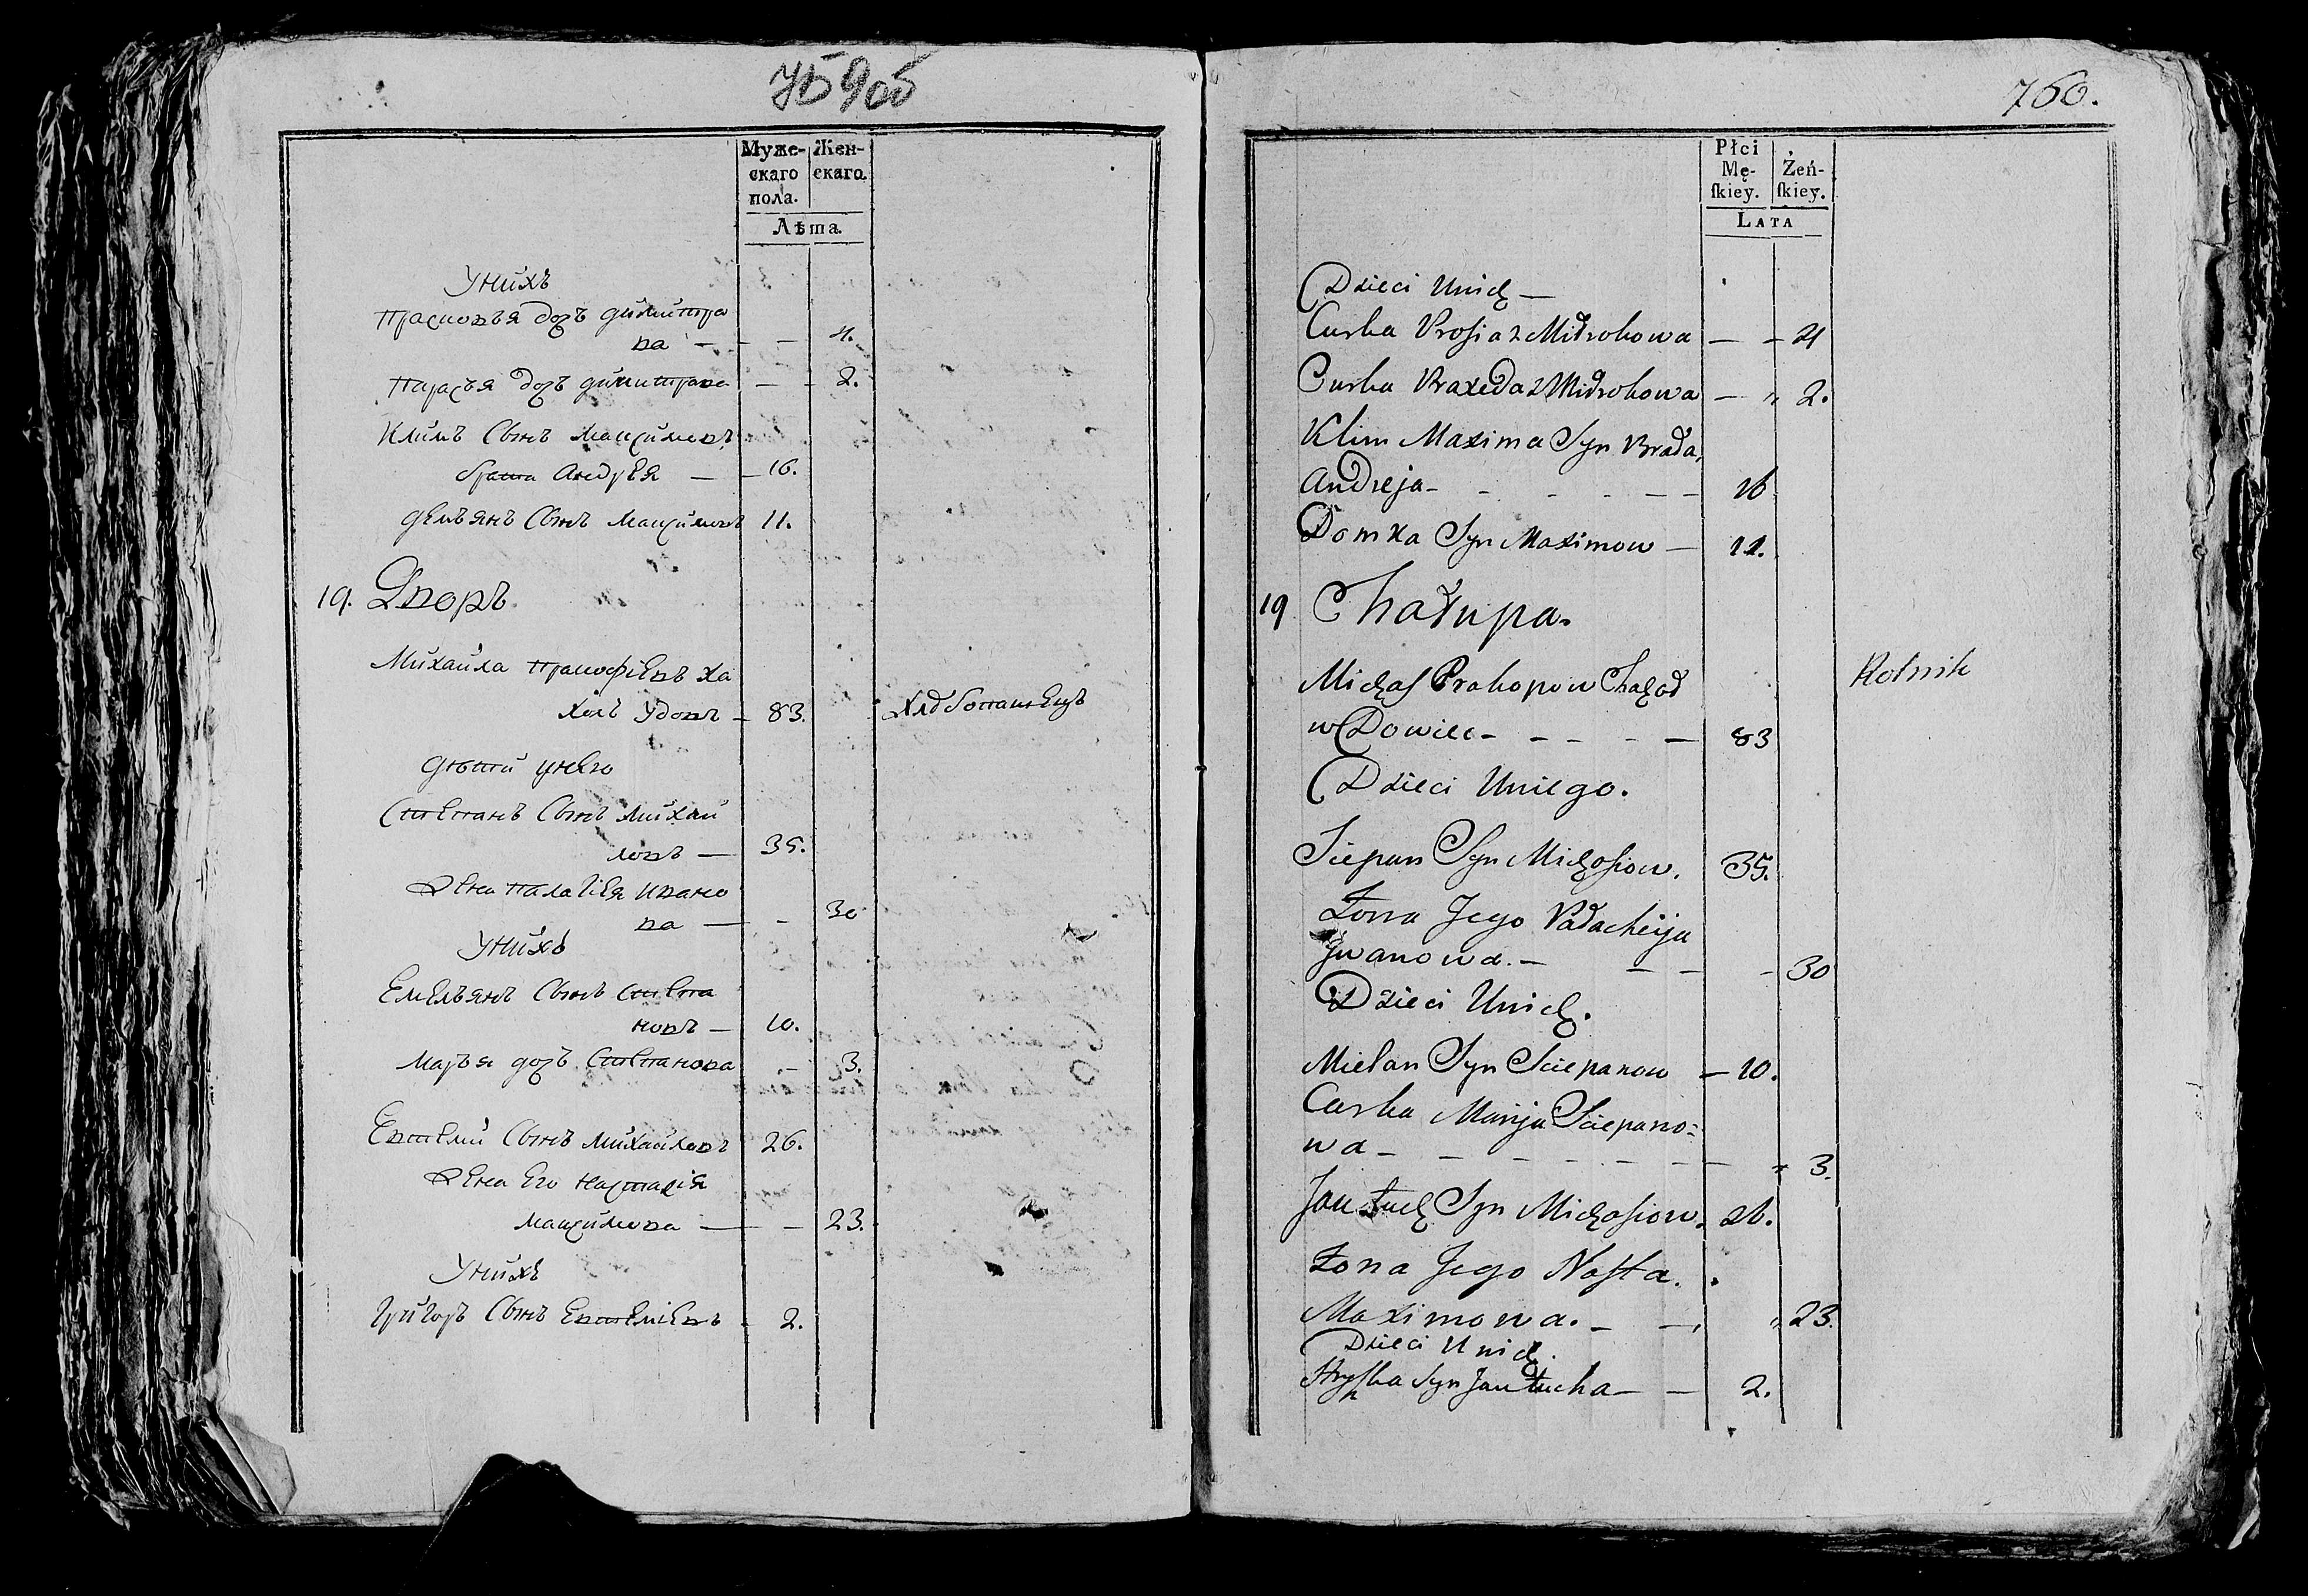 759об
Муже-
скаго
пола.
Жен-
скаго.
Лѣта.
Унихъ
Прасковья дочь димитро
ва — — — 4.
Парасья дочь димитрова — — 2.
Климъ Сынъ Максимовъ
брата Андрея — — 16.
демьянъ Сынъ Максимовъ 11.
19. Дворъ
Михайла Прокофьевъ
удовъ — 83. Хлебопашецъ
дѣти унего
Степанъ Сынъ Михай
ловъ — 35.
Жена Палагiея Ивано
ва — — 30
Унихъ
Емельянъ Сынъ Степа
новъ — 10.
Марья дочь Степанова — 3.
Сынъ Михайловъ 26.
Жена Его Настасiя
Максимова — — 23.
Унихъ
Григоръ Сынъ 2.
760.
Płci
Mę-
ſkiey.
Żeń-
ſkiey.
LATA
Dzieci Unich —
Curka Prosia z Mitrokowa — — 4
Curka Praxeda z Mitrokowa — „ 2.
Klim Maxima Syn Brata
Andreja - - - - — — 16
Domka Syn Maximow — 11.
19 Chałupa.
Michaś Prakopow Rolnik
wDowiec - - - - — 83
Dzieci Uniego.
Sciepan Syn Michasiow. 35.
Żona Jego Pałacheija
Jwanowa. — — — - 30
Dzieci Unich.
Mielan Syn Sciepanow — 10.
Curka Marija Sciepano=
wa - - - - - — „ 3.
Jautuch Syn Michasiow. 26.
Żona Jego Nasta.
Maximowa. - —, „ 23.
Dzieci Unich.
Hryszka Syn Jautucha — — 2.